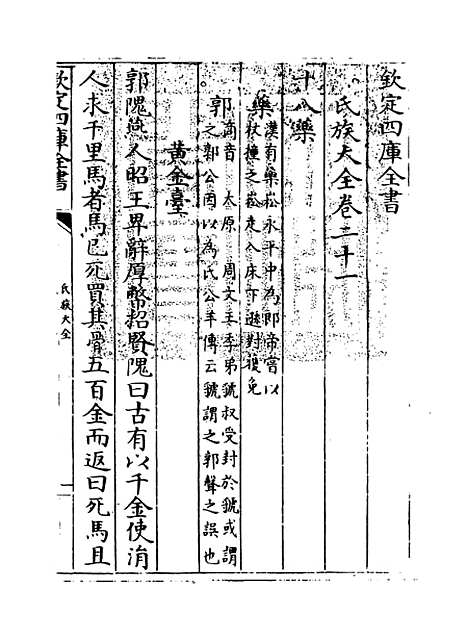 欽定四庫全書
氏族大全卷二十一
十八藥
藥
漢有藥崧永平中為郎帝嘗以
杖撞之崧走入床下遜對獲免
郭
商音 太原 周文王季弟虢叔受封於虢或謂
之郭公因以為氏公羊傳云虢謂之郭聲之誤也
黄金臺
郭隗燕人昭王卑辭厚幣招賢隗曰古有以千金使涓
人求千里馬者馬已死買其骨五百金而返曰死馬且
欽定四庫全書
氏族大全